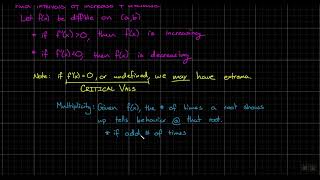 Find intervals of increase & decrease
Let f(x) be diff'ble on (a,b)
* if f'(x)>0, then f(x) is increasing
* if f'(x)<0, then f(x) is decreasing
Note: if f'(x)=0, or undefined, we may have extrema.
CRITICAL VALS
Multiplicity: Given f(x), the # of times a root shows
up tells behavior @ that root.
* if odd # of times